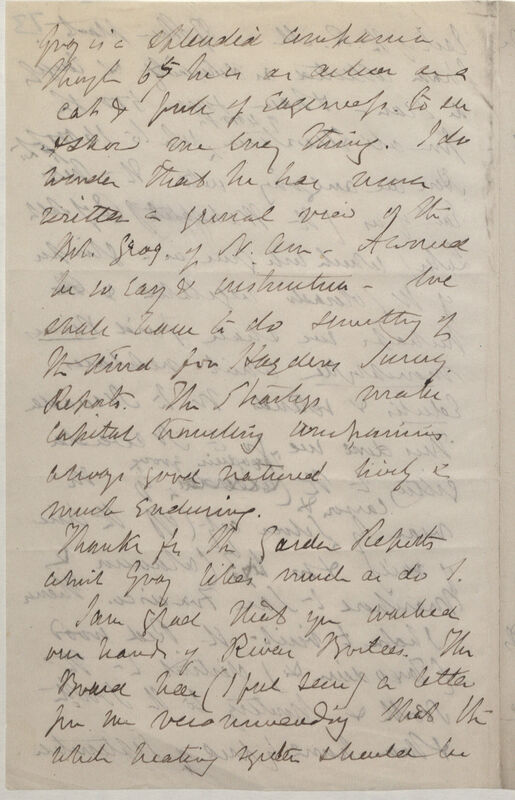 Gray is a splendid companion
though 65 he is as active as a
cat & full of Eagerness to see
& show me every thing. I do
wonder that he has never
written a general view of the
Bot. Geog. of N. Am - it would
be so easy & instructive - We
shall have to do something of
the kind for Haydens Survey
Reports. The Stracheys make
capital travelling companions.
always good natured lively &
much Enduring.
Thanks for the Garden Reports
which Gray likes much as do I.
I am glad that you worked
our hands of River Boilers. The
Board has (I feel sure) a letter
from me recommending that the
whole heating system should be